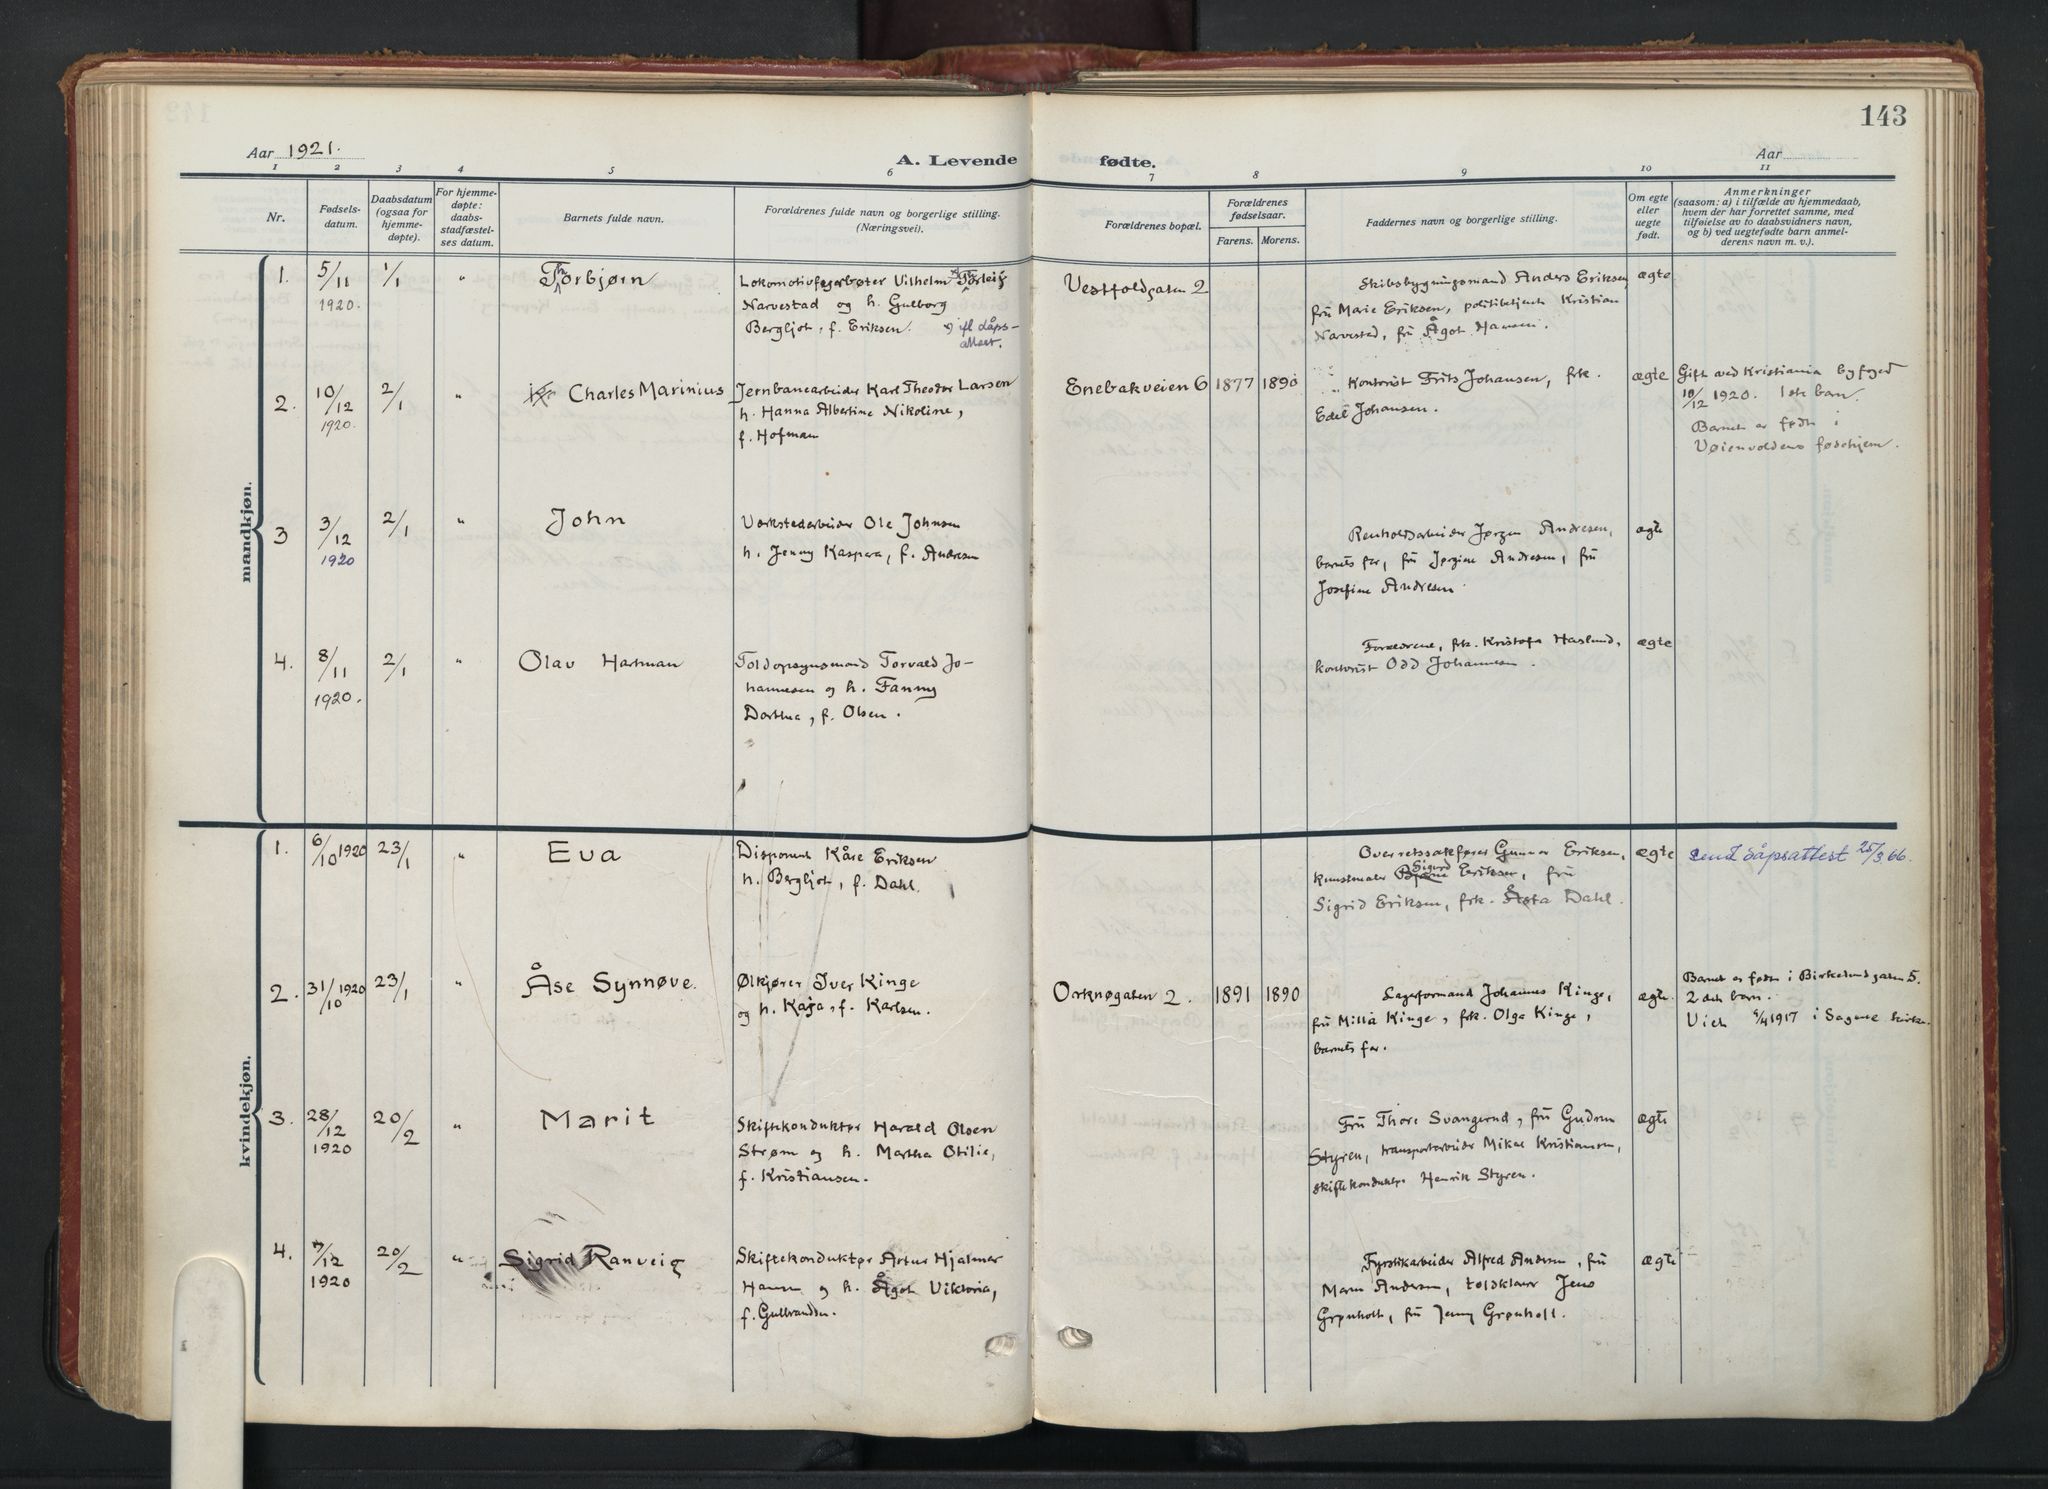 143
Aar 1921.
A. Levende fødte.
Aar
1 2 3 4 5 6 7 8 9 10 11
Nr.
Fødsels-
datum.
Daabsdatum
(ogsaa for
hjemme-
døpte).
For hjemme-
døpte:
daabs-
stadfæstel-
ses datum.
Barnets fulde navn.
Forældrenes fulde navn og borgerlige stilling.
(Næringsvei).
Forældrenes bopæl.
Forældrenes
fødselsaar.
Farens. Morens.
Faddernes navn og borgerlige stilling.
Om egte
eller
uegte
født.
Anmerkninger
(saasom: a) i tilfælde av hjemmedaab,
hvem der har forrettet samme, med
tilføielse av to daabsvidners navn,
og b) ved uegtefødte barn anmel-
derens navn m. v.).
mandkjøn.
1.
5/11
1920.
1/1
"
Thorbjørn
Lokomotivfyrbøter Vilhelm x) Thorleif
Narvestad og h. Gulborg
Bergljot, f. Eriksen. x) ifl dåps-
attest.
Vestfoldgaten 2
Skibsbygningsmand Anders Eriksen
frü Marie Eriksen, politibetjent Kristian
Narvestad, frü Ågot Hansen.
ægte
2.
10/12
1920.
2/1
"
Charles Marinius
Jernbanearbeider Karl Theodor Larsen
h. Hanna Albertine Nikoline,
f. Hofman
Enebakveien 6
1877
1890
Kontorist Frits Johansen, frk.
Edel Johansen.
ægte
Gift ved Kristiania byfoged
10/12 1920. 1ste barn.
Barnet er født i
Vøienvoldens fødehjem.
3
3/12
1920
2/1
"
John
Verkstedarbeider Ole Johnsen
h. Jenny Kaspara, f. Andresen
Renholdsarbeider Jørgen Andresen,
barnets far, frü Jørgine Andresen, frü
Josefine Andresen.
ægte
4.
8/11
1920.
2/1
"
Olav Hartman
Toldopsynsmand Torvald Jo-
hannesen og h. Fanny
Dorthea, f. Olsen.
Forældrene, frk. Kristofa Haslund,
kontorist Odd Johannesen.
ægte
kvindekjøn.
1.
6/10 1920
23/1
"
Eva
Disponent Kåre Eriksen
h. Bergljot, f. Dahl.
Overretssakfører Gunnar Eriksen,
kunstmaler Sigurd Eriksen, frü
Sigrid Eriksen, frk. Åsta Dahl.
ægte
send dåpsattest 25/3 66.
2.
31/10 1920
23/1
"
Åse Synnøve.
Ølkjører Iver Kinge
og h. Kaja, f. Karlsen.
Orknøgaten 2.
1891
1890
Lagerformand Johannes Kinge,
frü Milla Kinge, frk. Olga Kinge,
barnets far.
ægte.
Barnet er født i Birkelundgaten 5.
2det barn.
Viet 4/4 1917 i Sagene kirke.
3.
28/12
1920
20/2
"
Marit
Skiftekonduktør Harald Olsen
Strøm og h. Martha Otilie,
f. Kristiansen.
Frü Thore Svangerud, frü Gudrun
Styren, transportarbeider Mikal Kristiansen,
skiftekonduktør Henrik Styren.
ægte
4.
7/12
1920
20/2
"
Sigrid Ranveig
Skiftekonduktør Artur Hjalmer
Hansen og h. Ågot Viktoria,
f. Gulbrandsen.
Fyrstikarbeider Alfred Andersen, frü
Maren Andersen, toldklarer Jens
Grønholt, frü Jenny Grønholt.
ægte